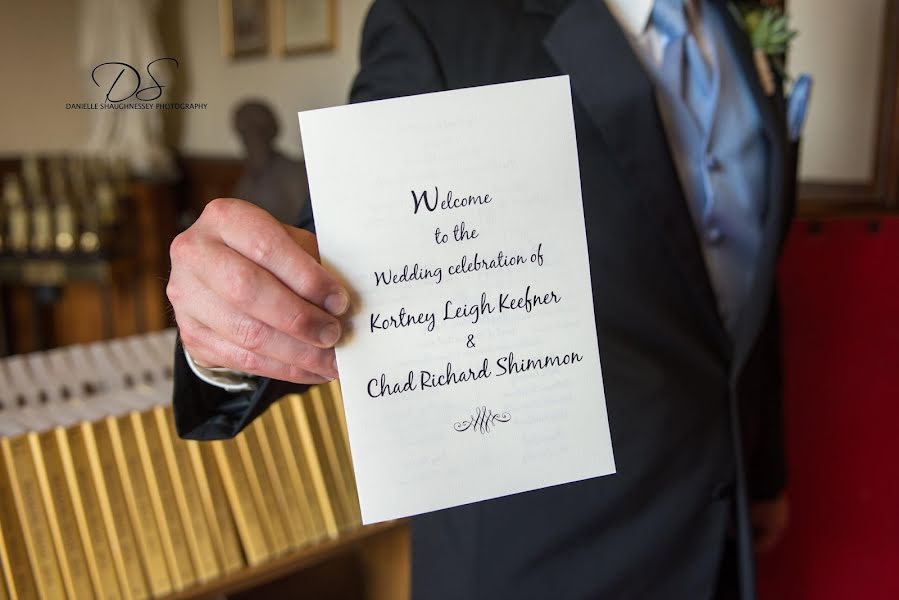 DS
DANIELLE SHAUGHNESSEY PHOTOGRAPHY
Welcome
to the
Wedding celebration of
Kortney Leigh Keefner
&
Chad Richard Shimmon